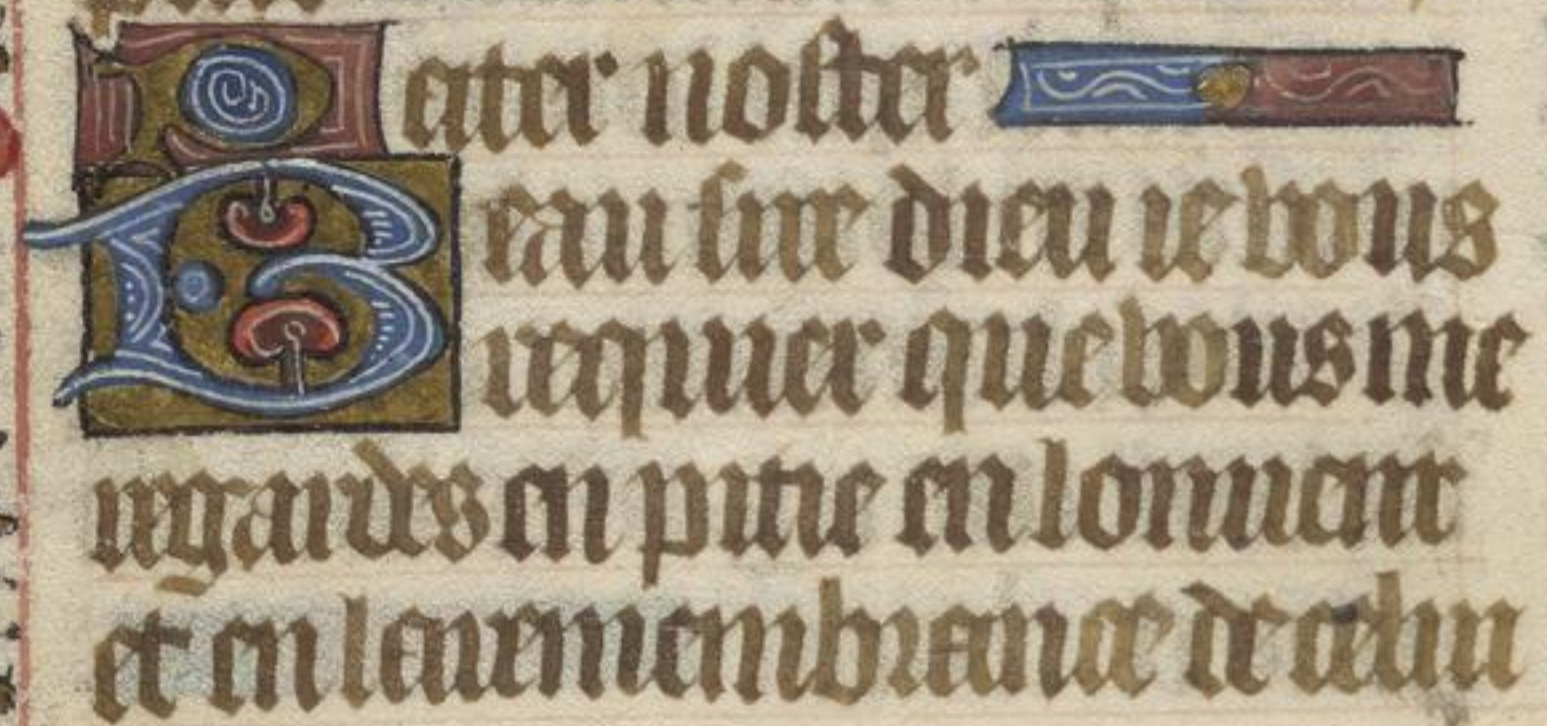 Pater noster
Beau sire dieu ie vous
requier que vous me
regardes en pitie en lonneur
et en la remembrance de celui